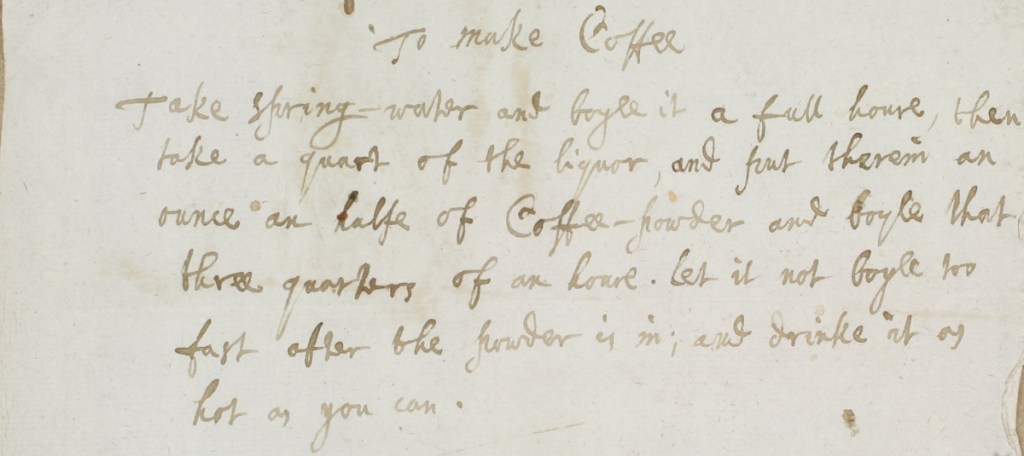 To make Coffee
Take Spring-water and boyle it a full houre, then
take a quart of the liquor, and put therein an
ounce an halfe of Coffee-powder and boyle that
three quarters of an houre. Let it not boyle too
fast after the powder is in; and drinke it as
hot as you can.